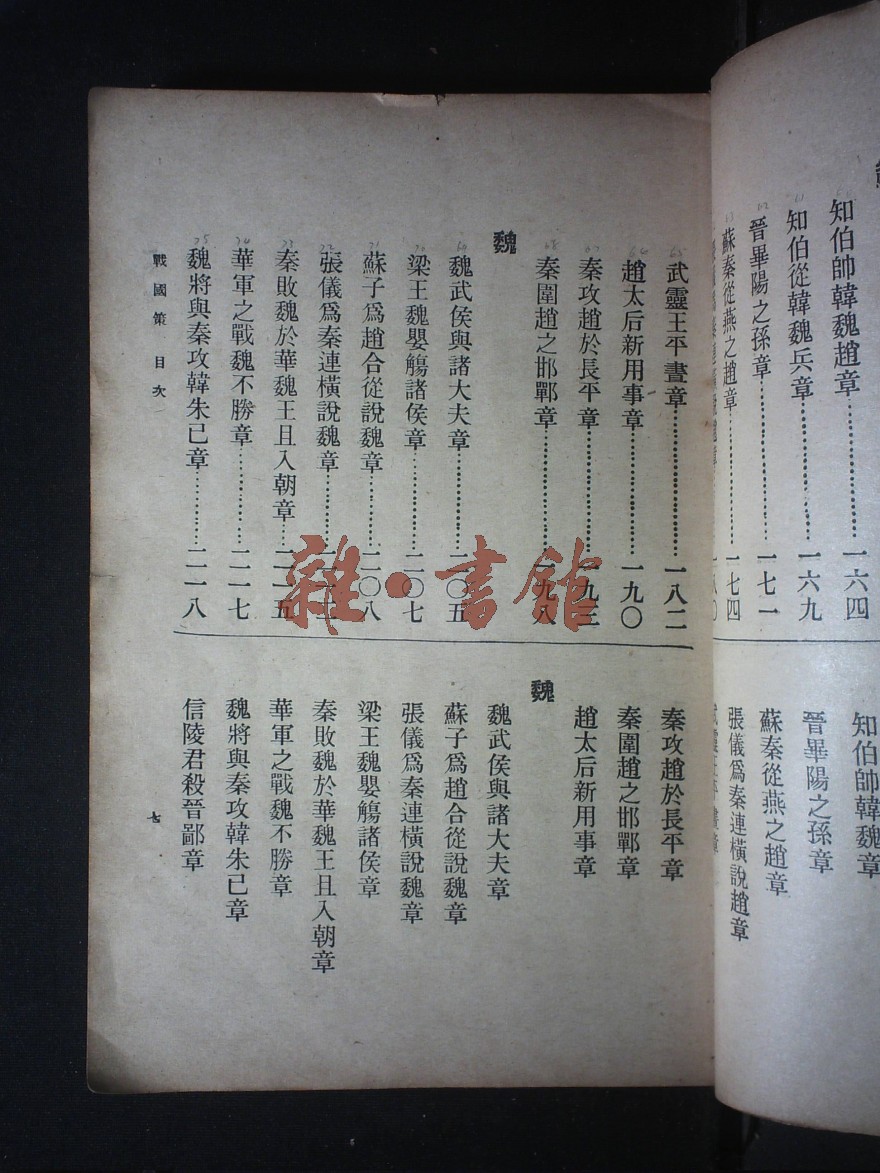 知伯帥韓魏趙章 一六四
知伯從韓魏兵章 一六九
晉畢陽之孫章 一七一
蘇秦從燕之趙章 一七四
知伯帥韓魏章
晉畢陽之孫章
蘇秦從燕之趙章
張儀爲秦連橫說趙章
武靈王平晝章 一八二
趙太后新用事章 一九〇
秦攻趙於長平章 一九三
秦圍趙之邯鄲章 一九八
魏
魏武侯與諸大夫章 二〇五
梁王魏嬰觴諸侯章 二〇七
蘇子爲趙合從說魏章 二〇八
張儀爲秦連橫說魏章
秦敗魏於華魏王且入朝章 二一五
華軍之戰魏不勝章 二一七
魏將與秦攻韓朱己章 二一八
秦攻趙於長平章
秦圍趙之邯鄲章
趙太后新用事章
魏
魏武侯與諸大夫章
蘇子爲趙合從說魏章
張儀爲秦連橫說魏章
梁王魏嬰觴諸侯章
秦敗魏於華魏王且入朝章
華軍之戰魏不勝章
魏將與秦攻韓朱己章
信陵君殺晉鄙章
戰國策 目次
七
雜·書館